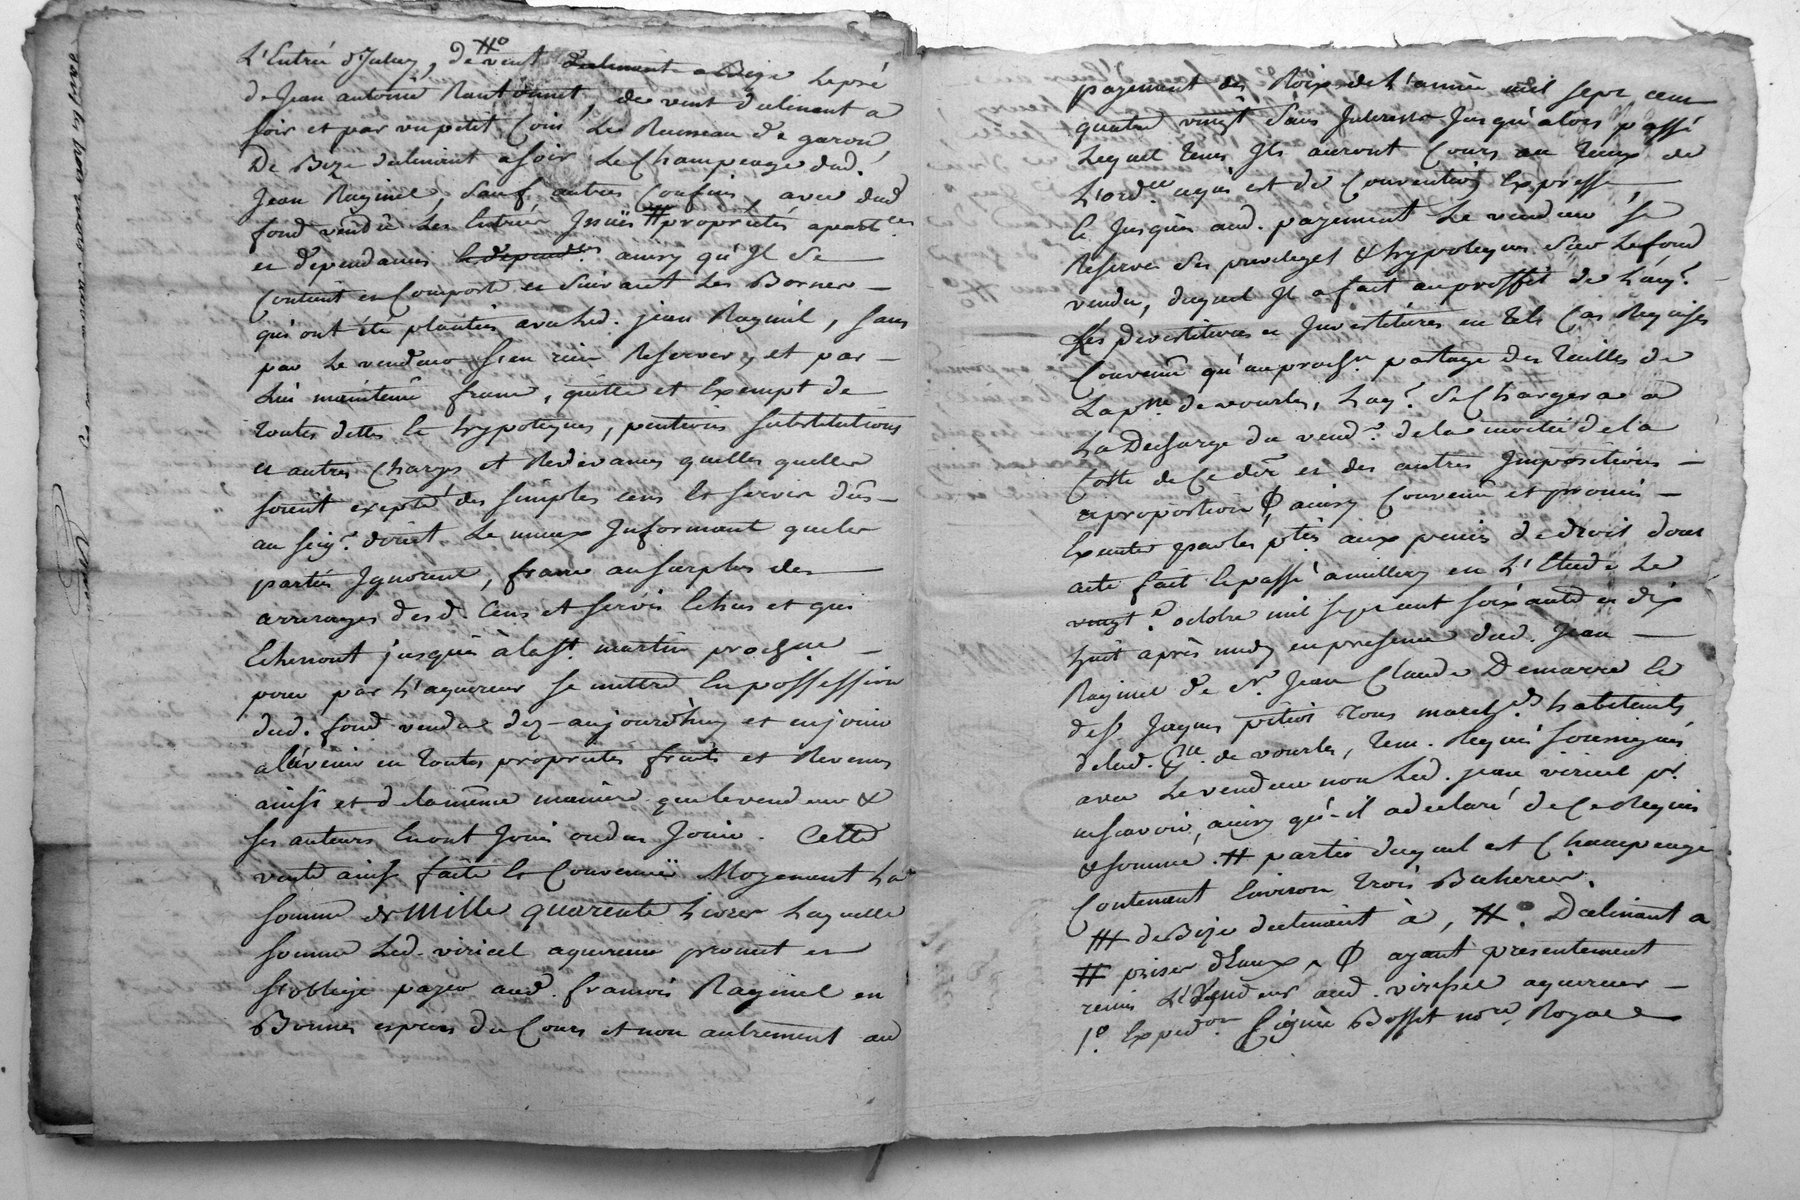 L'Entrée d'Iceluy, de #o vent déclinant a Bize le pré
de Jean antoine Rantonnet, de vent declinant a
soir et par un petit Coin Le Ruisseau de garon
De Bize declinant a soir Le Champeage dud.
Jean Raginel, sauf autres Confins, avec dud
fond vendu Les Entrées Issües # propriétés apart.ces
et dependances ainsy qu'Il Se
Contient et Comporte et Suivant Les Bornes
qui ont été plantées avec led. jean Raginel, sans
par Le vendeur s'en rien Reserver, et par
Lui maintenu franc, quitte et Exempt de
toutes dettes et hypoteques, pentions substitutions
et autres Charges et Redevances quelles quelles
soient excepté des simples cens et servis dûs
au seig.r direct Le mieux Informant que les
parties Ignorent, franc au surplus des
arrerages desd. Cens et servis Echus et qui
Echerront jusques à la st. martin prochne
pour par L'aquereur se mettre En possession
dud. fond vendu dez-aujourd'huy et en jouir
a l'avenir en toutes proprietes fruits et Revenus
ainsi et de la même maniere que le vendeur &
ses auteurs En ont Joui ou du Jouir. Cette
vente ainsi faite et Convenüe Moyenant La
somme de Mille quarente Livres Laquelle
somme Led. viricel aquereur promet et
s'oblige payer aud. francois Raginel en
Bonnes especes du Cours et non autrement au
payement des Rois de L'année mil sept cent
quatre vingt Sans Interests Jusqu'alors passé
Lequel tems Ils auront Cours au taux de
L'ord.ce ainsi est de Convention Expresse,
et Jusques aud. payement Le vendeur se
Reserve ses privileges & hypoteques sur Le fond
vendu, duquel Il a fait au proffit de L'aq.r
Les Devestitures et Investitures en tels Cas Requises
Convenu qu'au proch.n partage des tailles de
La p.sse de vourles, L'aq.r se Chargera a
La Decharge du vend.r de la moitié de la
Cotte de Ce d.er et des autres Impositions
a proportion ϕ ainsy Convenu et promis
Executer par les p.ties aux peines de droit dont
acte fait Et passé a millery en L'Etude Le
vingt.e octobre mil sept cent soixante et dix
huit après midy en presence dud. Jean
Raginel de S.r Jean Claude Demarre Et
de s.r Jaques pition tous march.ds habitants
de lad. p.sse de vourles, tem. Requis soussignés
avec Le vendeur non Led. jean viricel p.r
ne scavoir, ainsy qu'-il a declaré de Ce Requis
& sommé. # partie duquel est Champeage
Contenant Environ trois Bicherées.
## de Bize declinant à, #o Declinant a
# prises d'Eaux, ϕ ayant presentement
remis Le vendeur aud. viricel aquereur
1.e Exped.on Signée Bosset no.re Royal